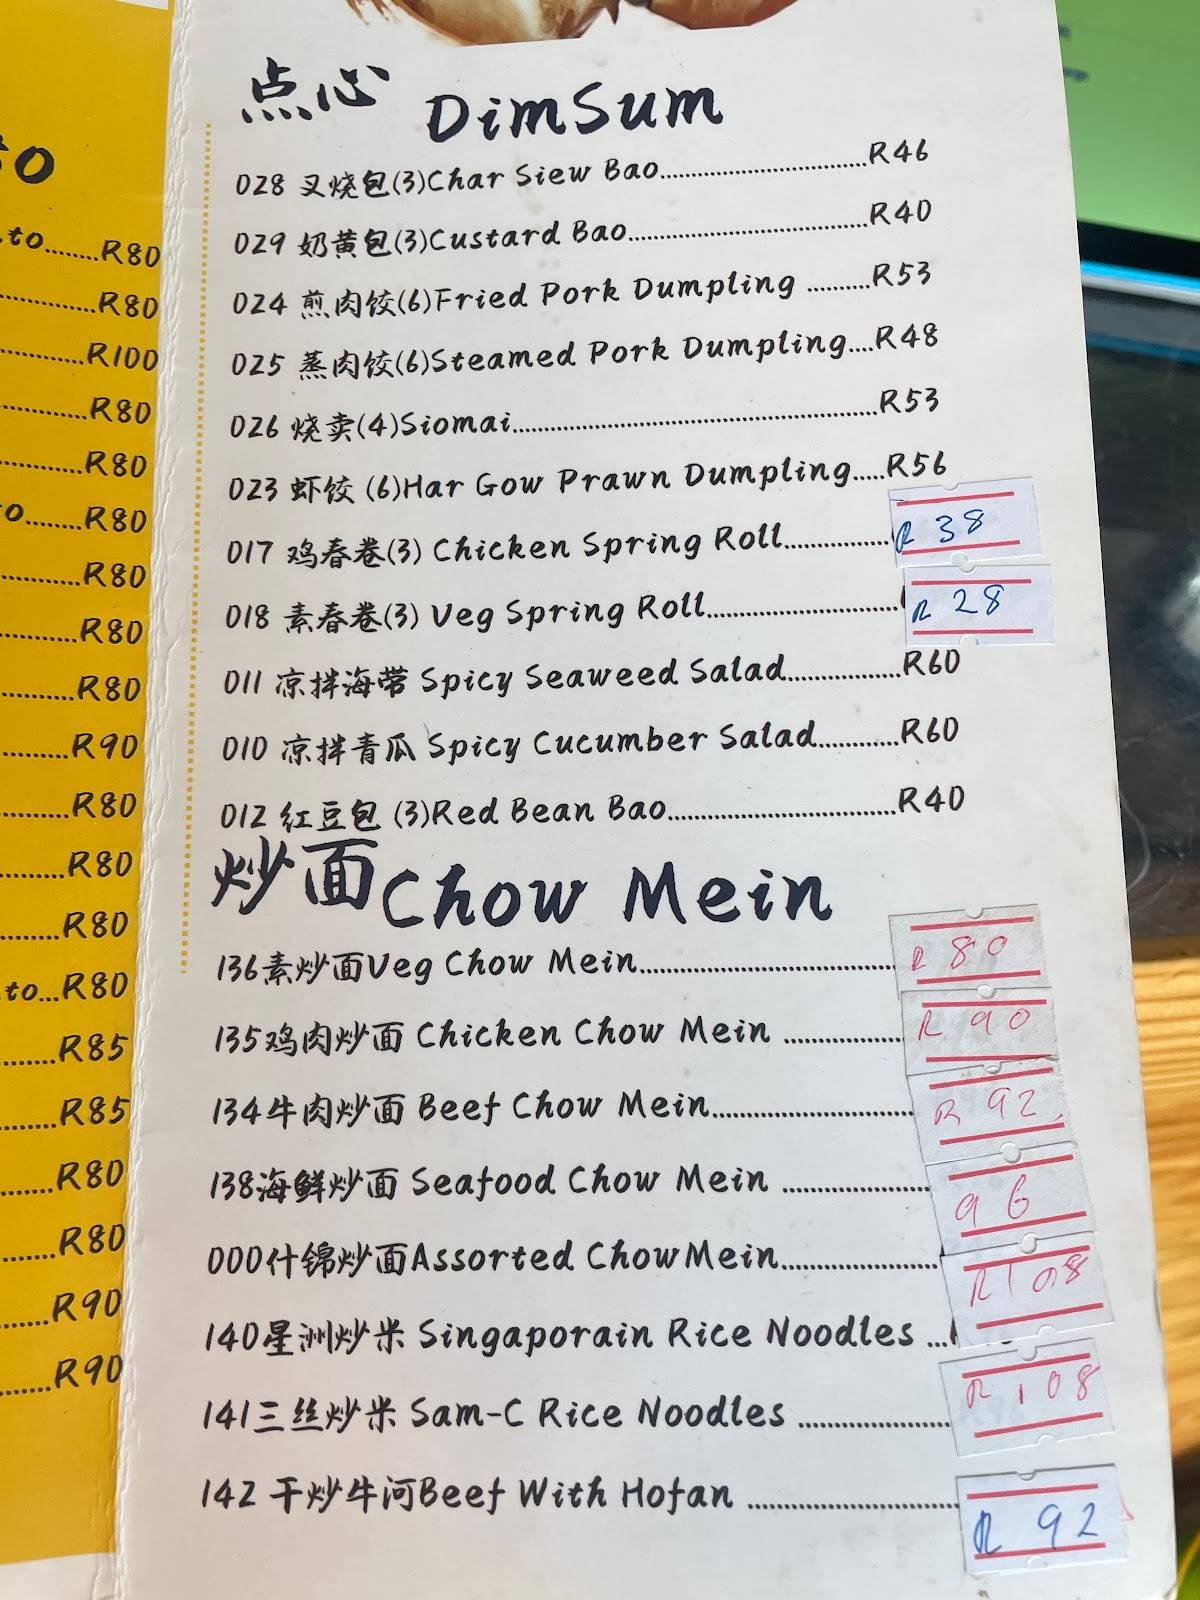 to
to......R80
R80
R100
R80
R80
o......R80
R80
R80
R80
R90
R80
R80
R80
to...R80
R85
R85
R80
R80
R90
R90
点心 DimSum
028 叉烧包(3)Char Siew Bao......R46
029 奶黄包(3)Custard Bao......R40
024 煎肉饺(6)Fried Pork Dumpling ......R53
025 蒸肉饺(6)Steamed Pork Dumpling....R48
026 烧卖(4)Siomai......R53
023 虾饺 (6)Har Gow Prawn Dumpling.....R56
017 鸡春卷(3) Chicken Spring Roll......R 38
018 素春卷(3) Veg Spring Roll......R 28
011 凉拌海带 Spicy Seaweed Salad......R60
010 凉拌青瓜 Spicy Cucumber Salad......R60
012 红豆包 (3)Red Bean Bao......R40
炒面 Chow Mein
136素炒面Veg Chow Mein......R 80
135鸡肉炒面 Chicken Chow Mein ......R 90
134牛肉炒面 Beef Chow Mein......R 92
138海鲜炒面 Seafood Chow Mein ......96
000什锦炒面Assorted ChowMein......R 108
140星洲炒米 Singaporain Rice Noodles ...
141三丝炒米 Sam-C Rice Noodles ......R 108
142 干炒牛河Beef With Hofan ......R 92